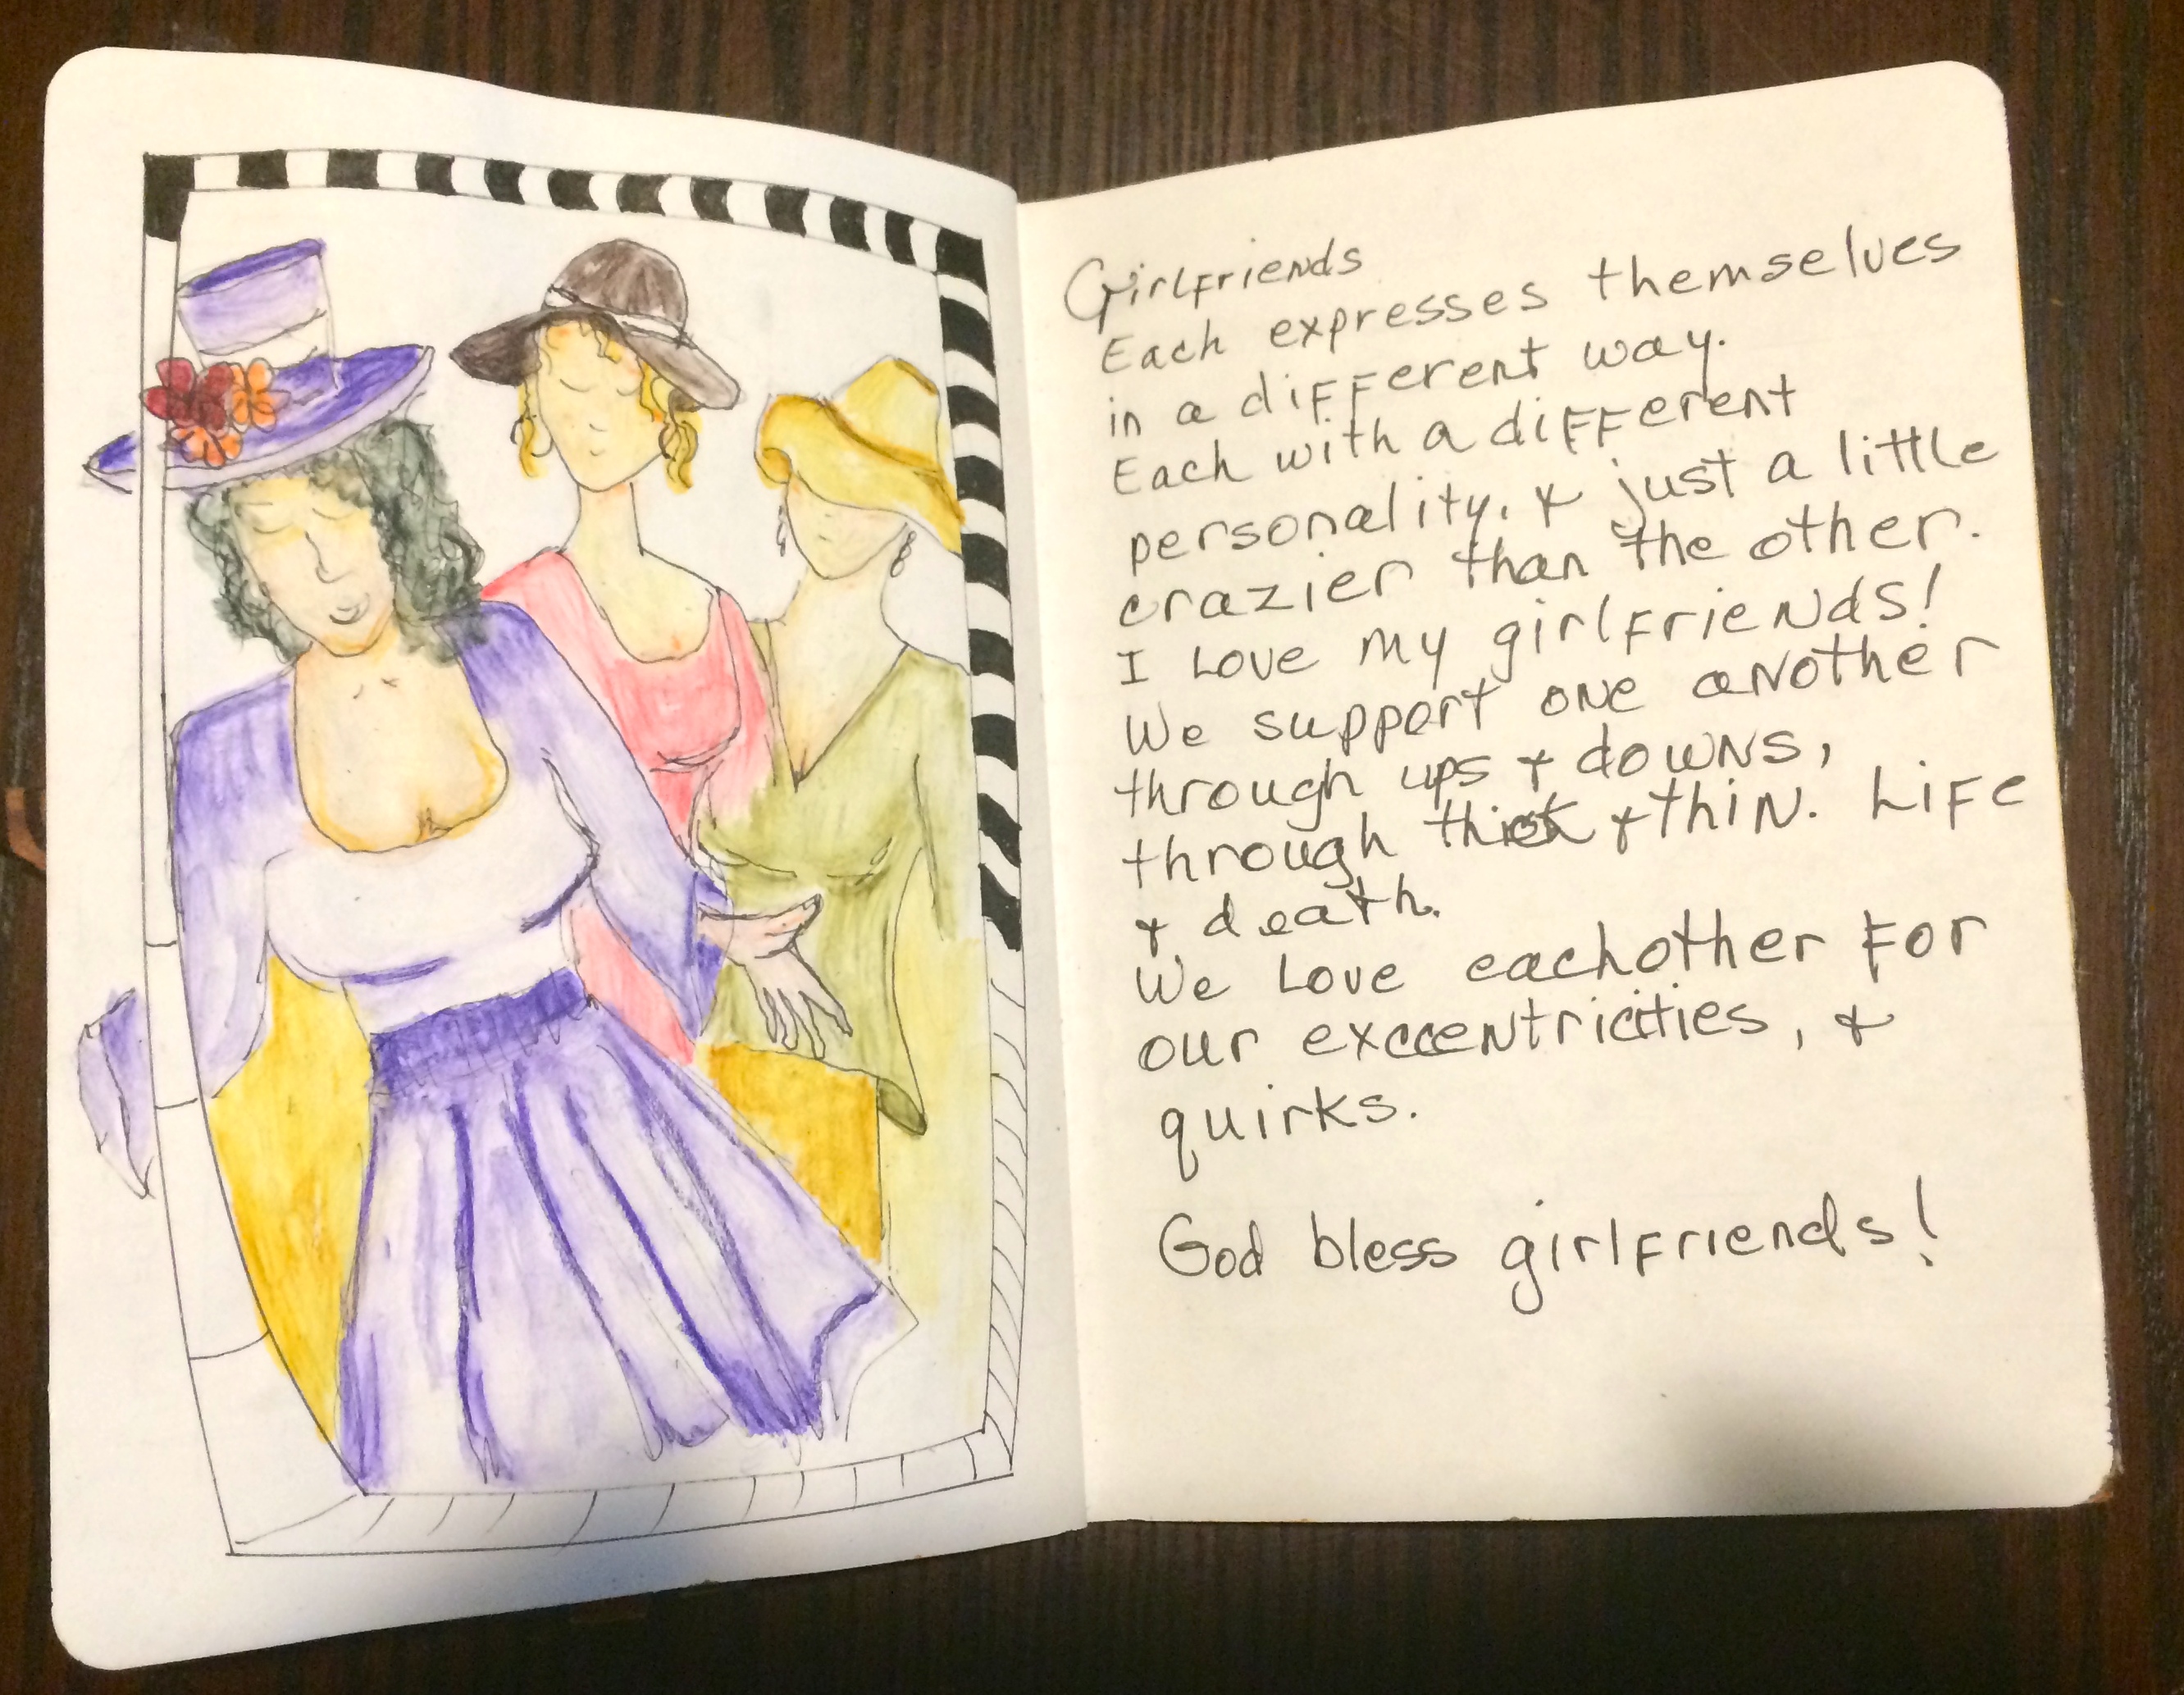 Girlfriends
Each expresses themselves
in a different way.
Each with a different
personality. & just a little
crazier than the other.
I Love my girlfriends!
We support one another
through ups & downs,
through thick & thin. Life
& death.
We Love eachother for
our exccentricities, &
quirks.
God bless girlfriends!